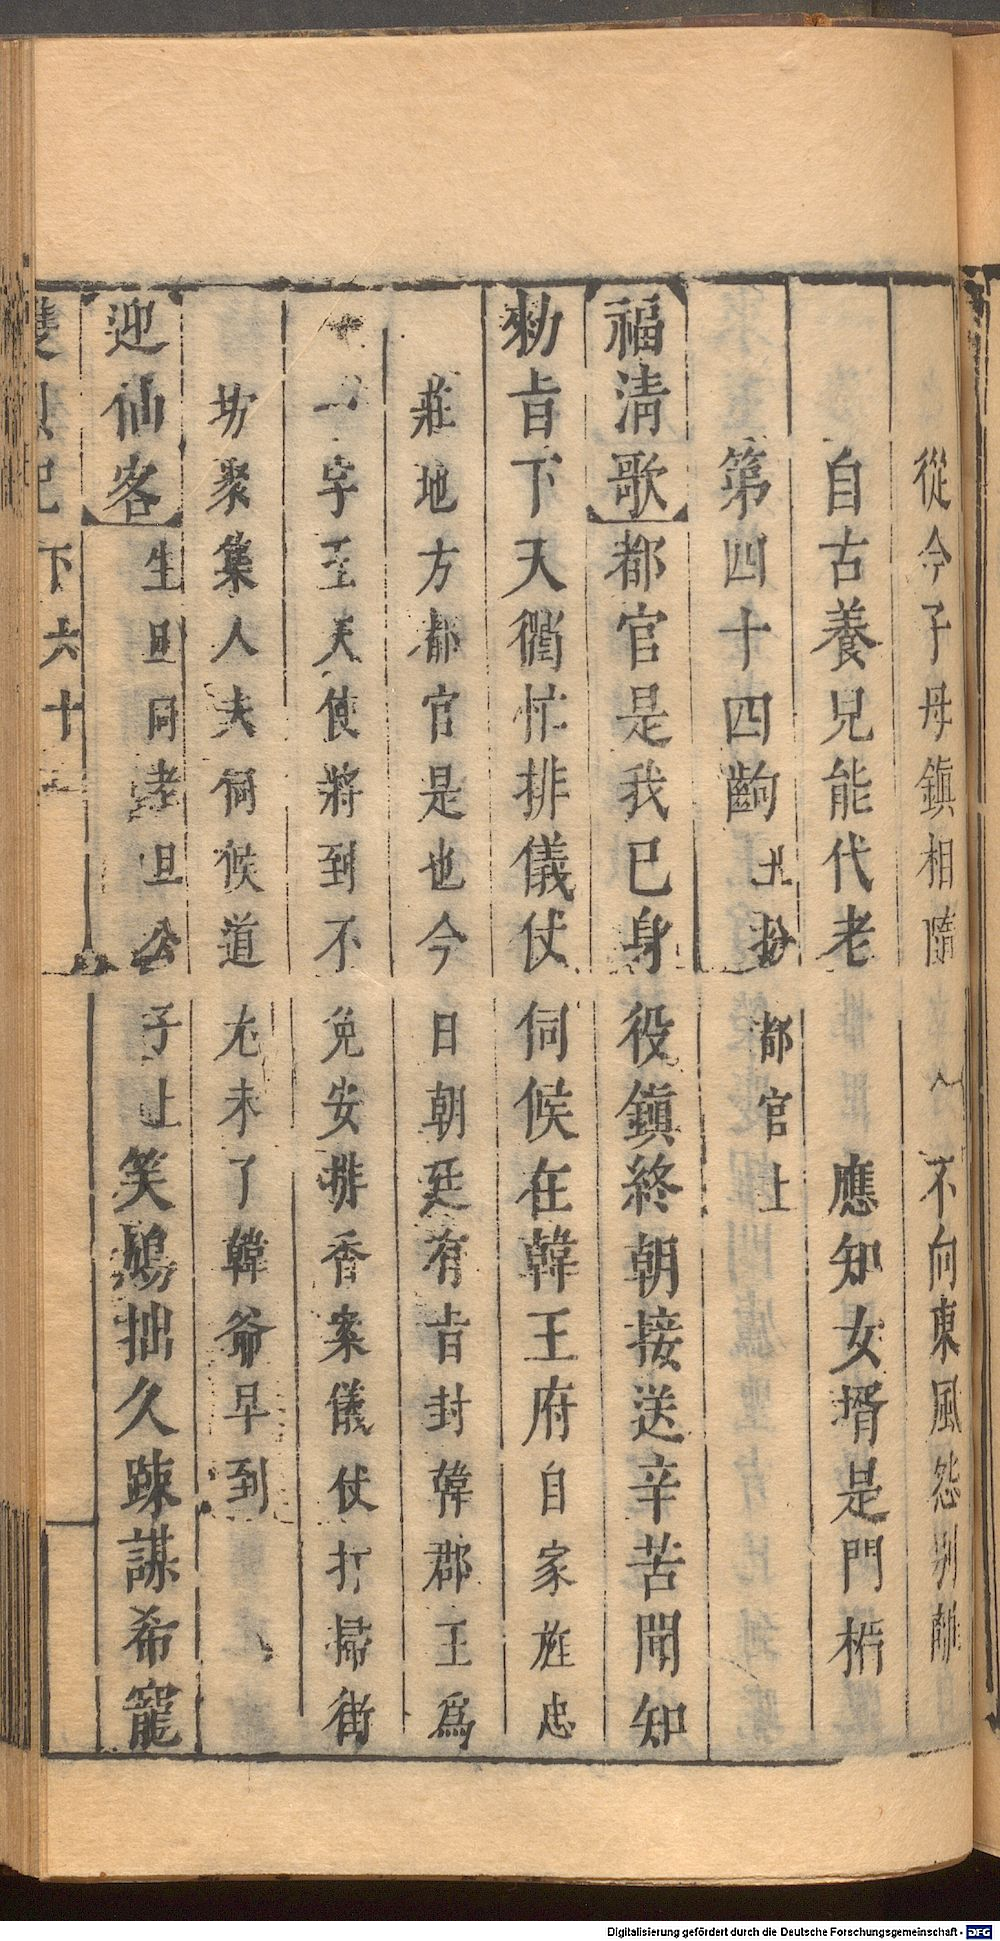 從今子母鎮相隨　不向東風怨別離
自古養兒能代老　應知女壻是門楣
第四十四齣　　都官上
福清歌都官是我已身役鎮終朝接送辛苦聞知
勅旨下天衢忙排儀仗伺候在韓王府自家旌忠
莊地方都官是也今日朝廷有旨封韓郡王爲
一字王天使將到不免安排香案儀仗打掃街
坊聚集人夫伺候道尤未了韓爺早到
迎仙客生旦同老旦公子上笑鳩拙久踈謀希寵
雙烈記下六十
Digitalisierung gefördert durch die Deutsche Forschungsgemeinschaft - DFG